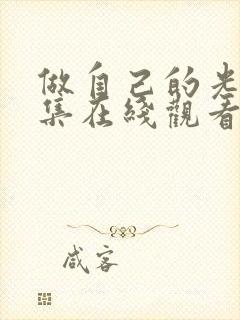 做自己的光
集在綫觀看
咸客